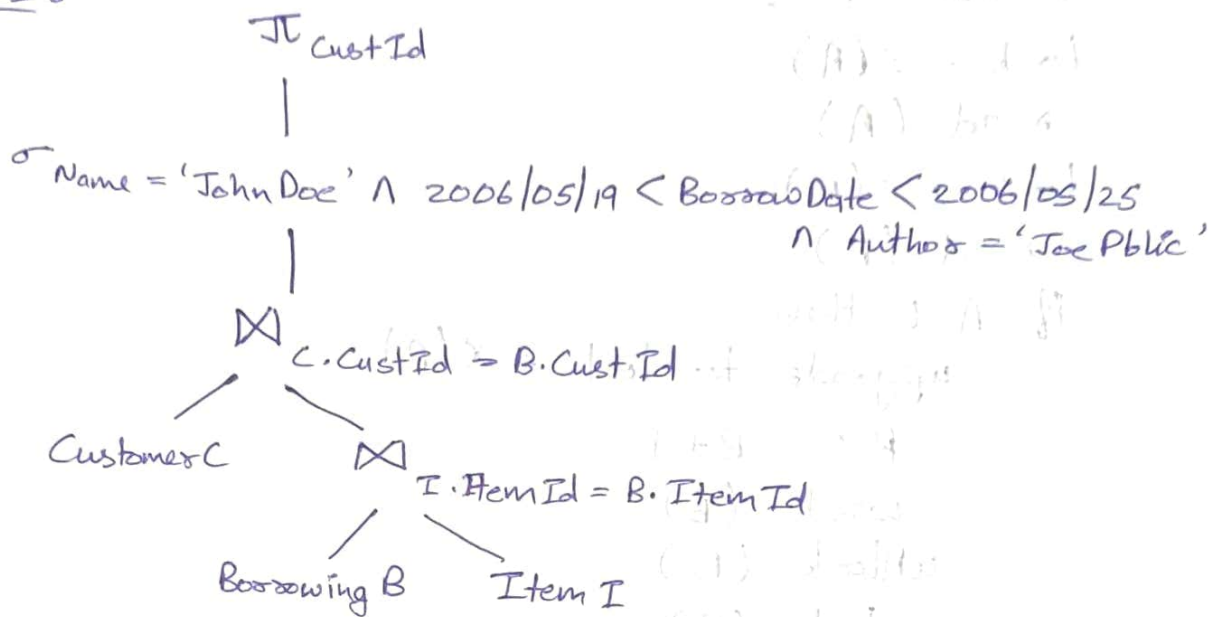 π CustId
σ Name = 'John Doe' ∧ 2006/05/19 < BorrowDate < 2006/05/25
∧ Author = 'Joe Pblic'
⋈ C.CustId = B.CustId
Customer C ⋈
I.ItemId = B.ItemId
Borrowing B Item I